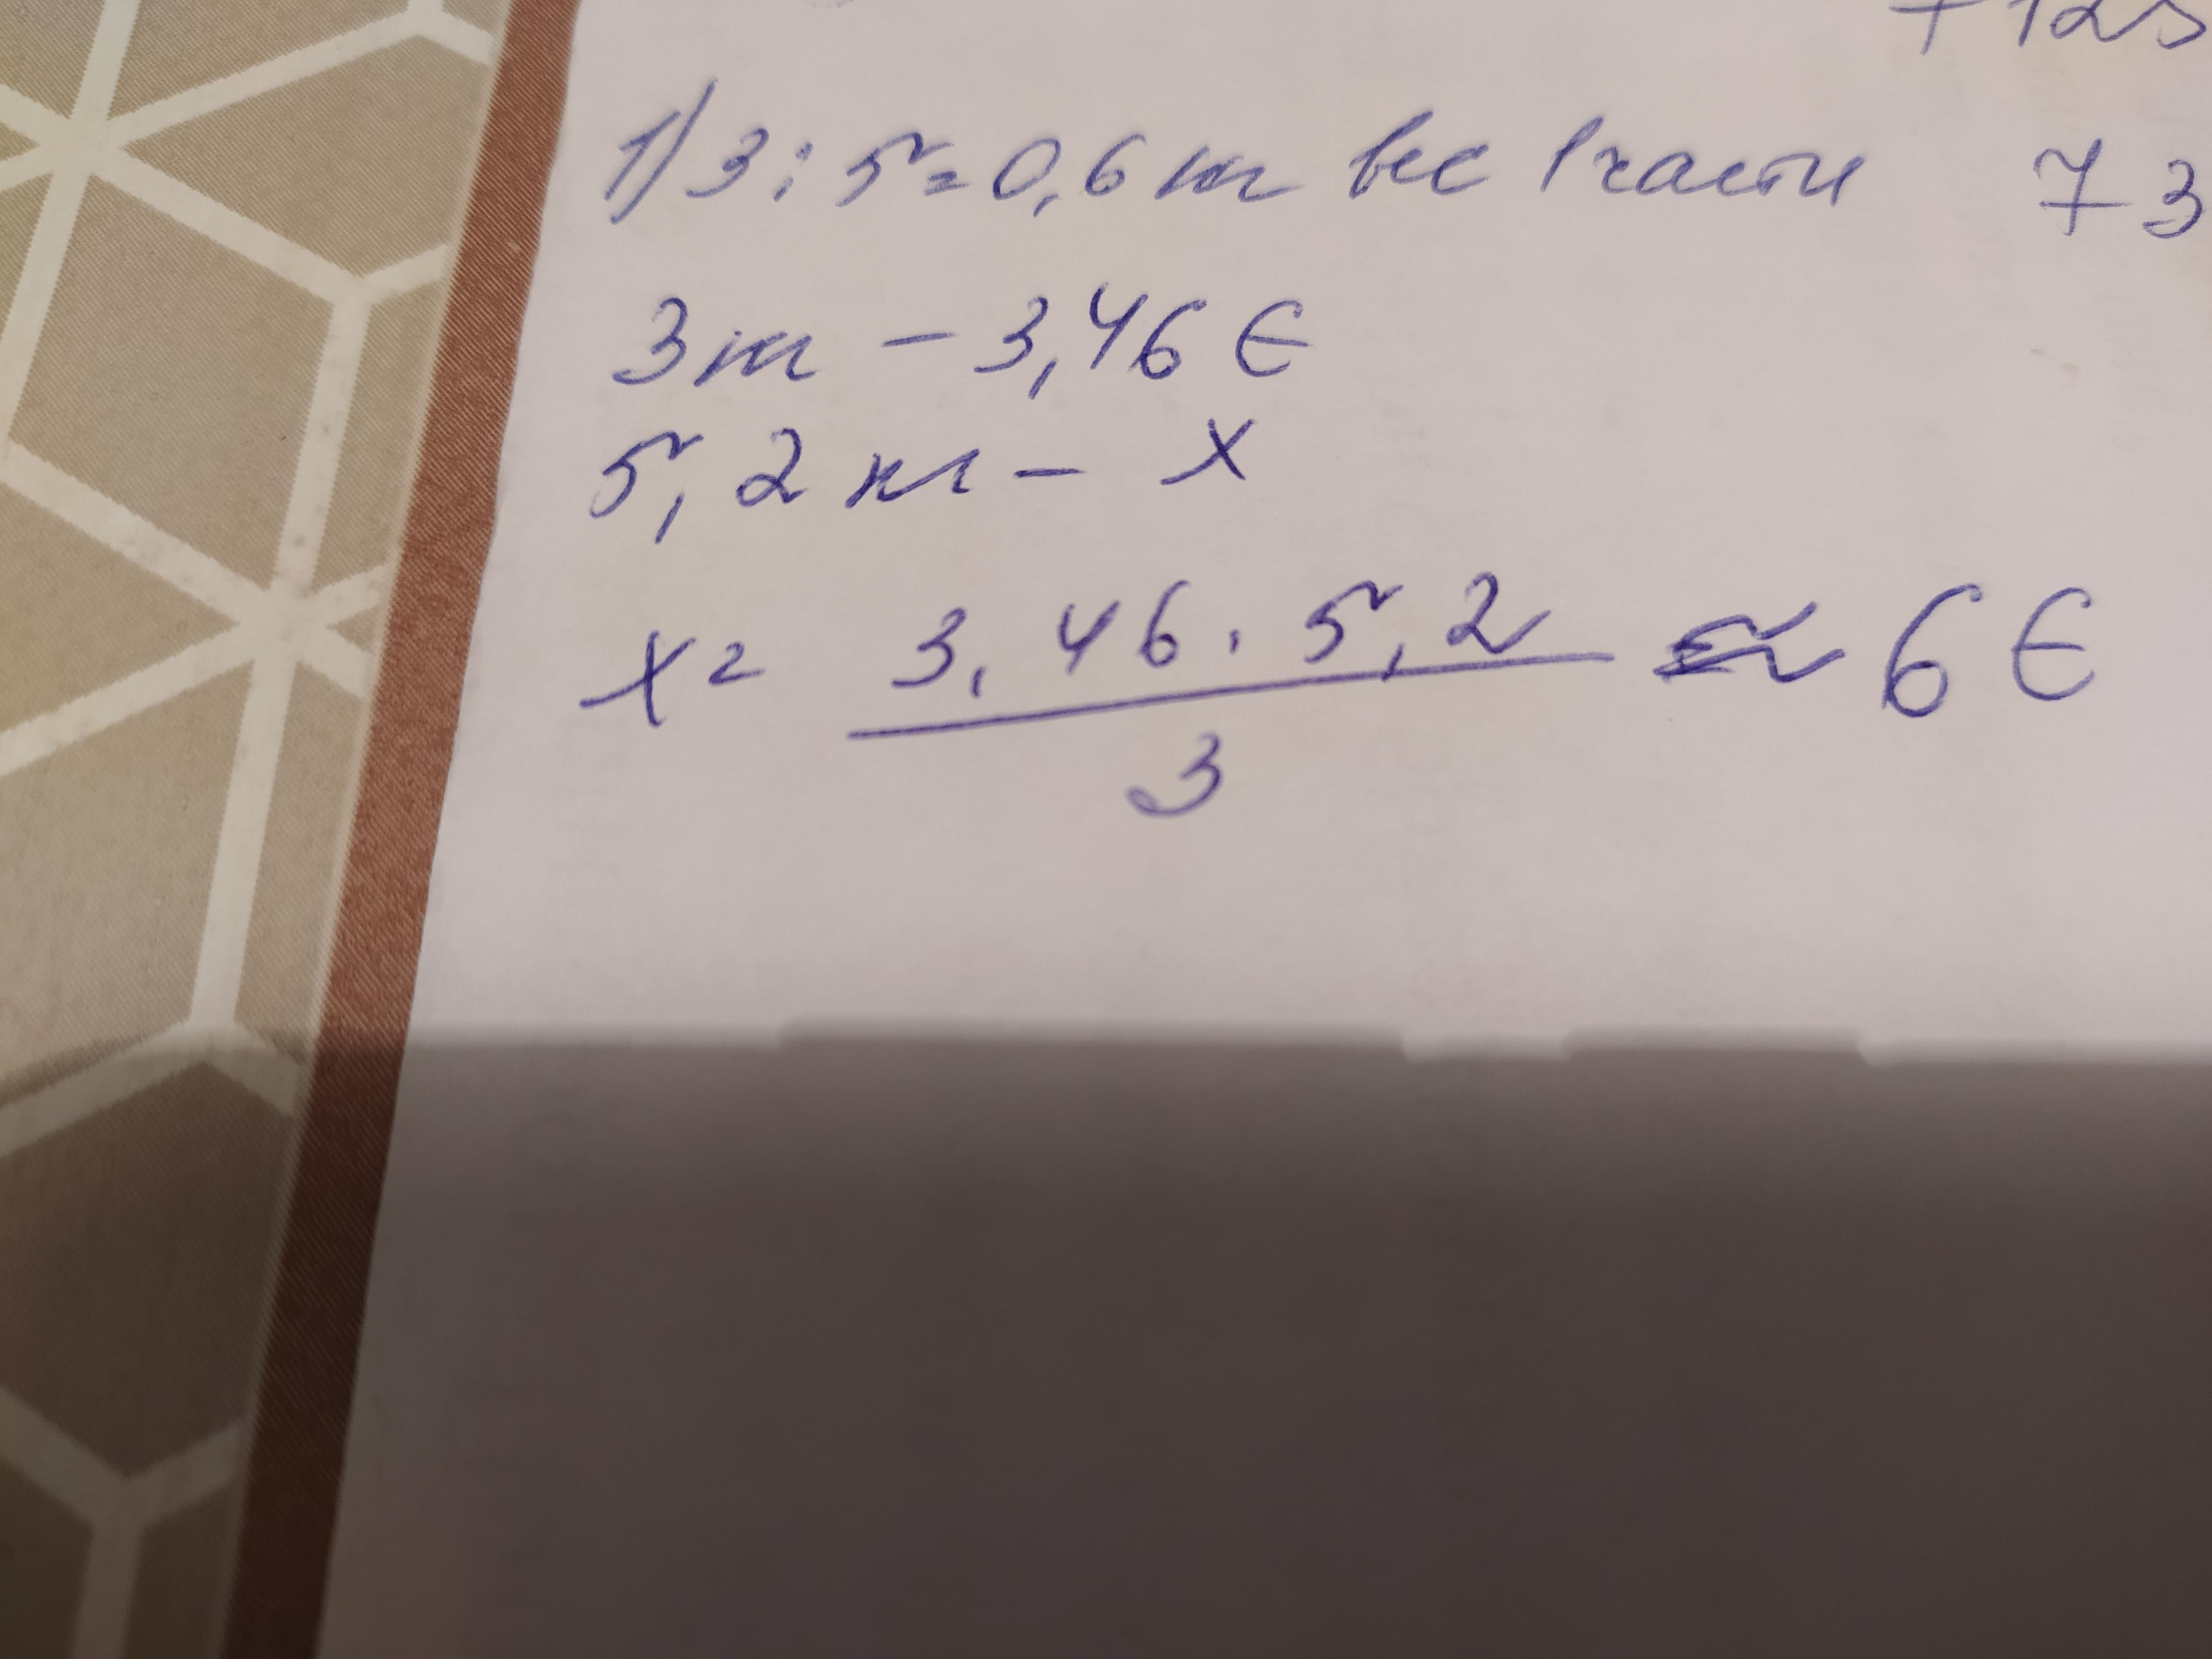 + 125
1) 3 : 5 = 0,6 кг вес 1 части 73
3 кг – 3,46 €
5,2 кг – x
x = 3,46 · 5,2 / 3 ≈ 6 €